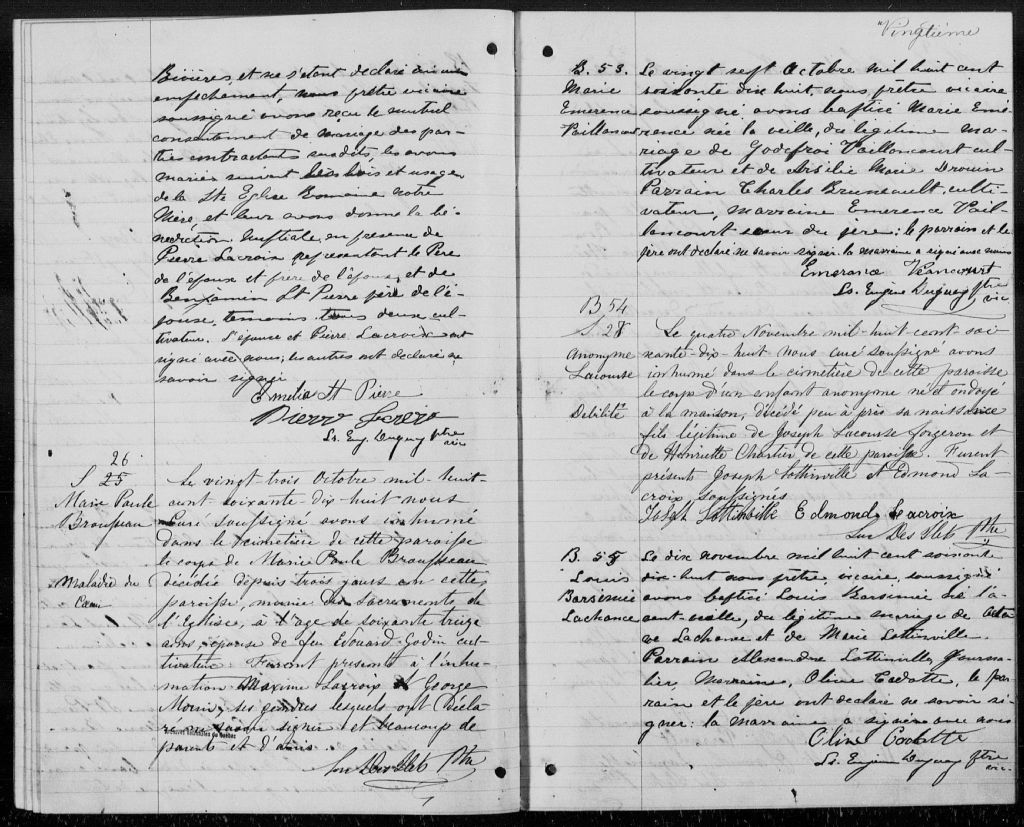 Rivières et ne s'étant déclaré aucun
empêchement, nous prêtre vicaire
soussigné avons reçu le mutuel
consentement de mariage des par-
ties contractantes susdites, les avons
mariés suivant les lois et usages
de la Ste Eglise Romaine notre
Mère, et leur avons donné la bé-
nédiction nuptiale, en présence de
Pierre Lacroix représentant le Père
de l'époux et frère de l'époux, et de
Benjamin St Pierre père de l'é-
pouse, témoins tous deux cul-
tivateurs. L'épouse et Pierre Lacroix ont
signé avec nous; les autres ont déclaré ne
savoir signer
Amelia St Pierre
Ls. Eug. Duguay Ptre
vic
26
S 25
Marie Paule
Brousseau
Maladie du
Cœur
Le vingt trois Octobre mil-huit-
cent-soixante-dix-huit-nous
Curé soussigné avons inhumé
dans le cimetière de cette paroisse
le corps de Marie Paule Brousseau
décédée depuis trois jours en cette
paroisse, munie des sacrements de
l'Eglise, à l'age de soixante treize
ans, épouse de feu Edouard Godin cul-
tivateur. Furent présents à l'inhu-
mation Maxime Lacroix et George
Morin, ses gendres lesquels ont décla-
ré ne savoir signer et beaucoup de
parents et d'amis.
Luc Des Ilets Ptre
Vingtième
B. 53.
Marie
Emerence
Vaillancourt
Le vingt sept Octobre mil huit cent
soixante dix huit nous prêtre vicaire
soussigné avons baptisé Marie Emé-
rence née la veille, du légitime ma-
riage de Godefroi Vaillancourt cul-
tivateur et de Arsélie Marie Drouin
Parrain Charles Bruneault, culti-
vateur, marraine Emerence Vail-
lancourt sœur du père; le parrain et le
père ont déclaré ne savoir signer la marraine a signé avec nous
Emerance Veancourt
Ls. Eugène Duguay Ptre
vic
B 54
S. 28
Anonyme
Lacourse
Debilité
Le quatre Novembre mil-huit-cent-soi-
xante-dix-huit nous curé soussigné avons
inhumé dans le cimetière de cette paroisse
le corps d'un enfant anonyme né et ondoyé
à la maison, décédé peu après sa naissance
fils légitime de Joseph Lacourse forgeron et
de Henriette Chartier de cette paroisse. Furent
présents Joseph Lottinville et Edmond La-
croix soussignés
Joseph Lottinville Edmond Lacroix
Luc Des Ilets Ptre
B. 55
Louis
Barsimée
Lachance
Le dix novembre mil huit cent soixante
dix-huit nous prêtre, vicaire, soussigné
avons baptisé Louis Barsimée né l'a-
vant-veille, du légitime mariage de Octa-
ve Lachance et de Marie Lottinville.
Parrain Alexandre Lottinville, Journa-
lier Marraine, Olive Cadotte, le par-
rain et le père ont déclaré ne savoir si-
gner: la marraine a signé avec nous
Olive Cadotte
Ls. Eugène Duguay Ptre
vic.